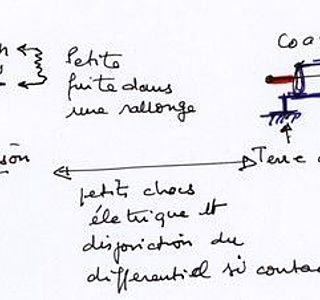 Petite
fuite dans
une rallonge
Coa
Terre
petits chocs
életrique et
disjonction du
differentiel si conta